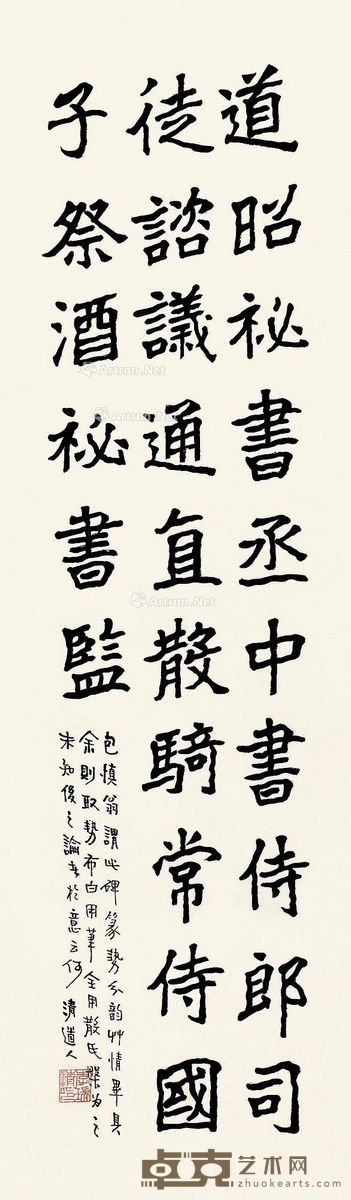 道昭祕書丞中書侍郎司
徒諮議通直散騎常侍國
子祭酒祕書監
包慎翁謂此碑篆勢分韵艸情畢具
余則取勢布白用筆全用散氏槃為之
未知後之論者於意云何 清道人
Artron.Net
Artron.Net
Artron.Net
卓克艺术网
zhuokearts.com